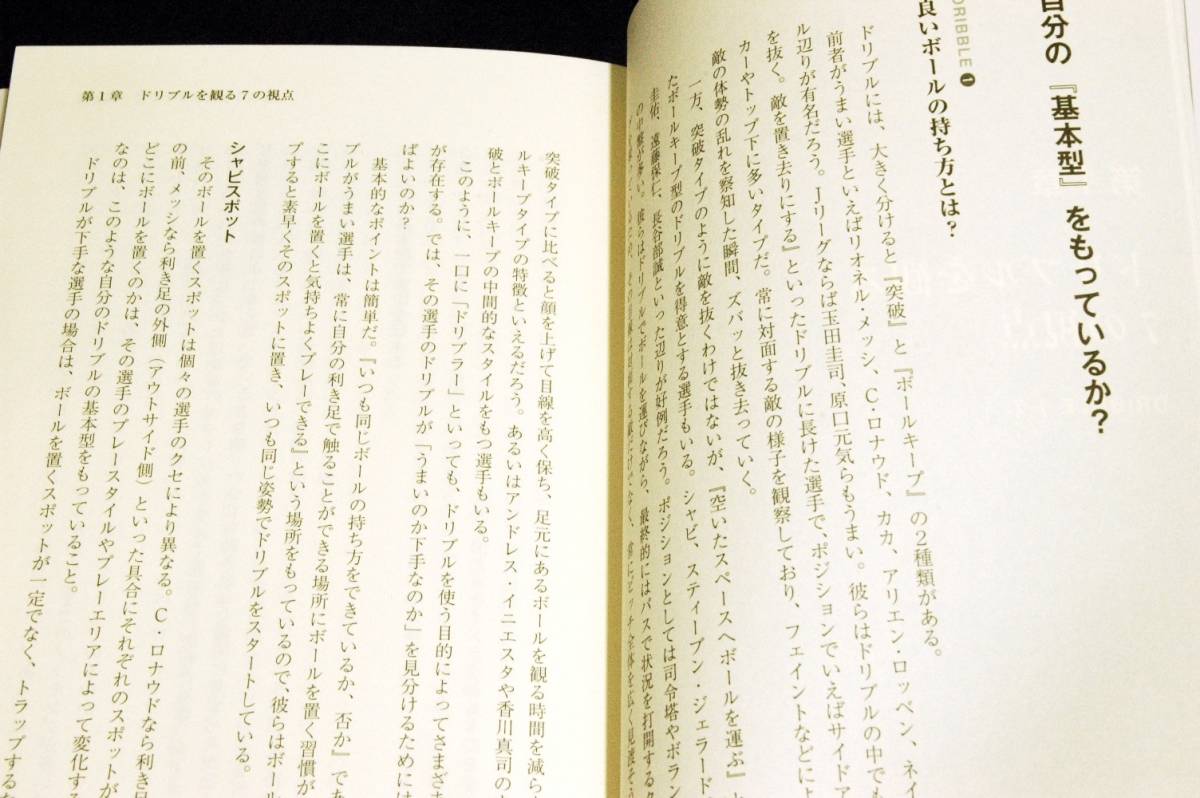 自分の『基本型』をもっているか？
DRIBBLE 1
良いボールの持ち方とは？
ドリブルには、大きく分けると『突破』と『ボールキープ』の2種類がある。
前者がうまい選手といえばリオネル・メッシ、C・ロナウド、カカ、アリエン・ロッベン、ネイ
ル辺りが有名だろう。Jリーグならば玉田圭司、原口元気らもうまい。彼らはドリブルの中でも
を抜く。敵を置き去りにする』といったドリブルに長けた選手で、ポジションでいえばサイドア
カーやトップ下に多いタイプだ。常に対面する敵の様子を観察しており、フェイントなどによ
敵の体勢の乱れを察知した瞬間、ズバッと抜き去っていく。
一方、突破タイプのように敵を抜くわけではないが、『空いたスペースへボールを運ぶ』と
たボールキープ型のドリブルを得意とする選手もいる。シャビ、スティーブン・ジェラード
圭佑、遠藤保仁、長谷部誠といった辺りが好例だろう。ポジションとしては司令塔やボラン
の中盤が多い。彼らはドリブルでボールを運びながら、最終的にはパスで状況を打開する
全体を広く見渡そう
第1章 ドリブルを観る7の視点
突破タイプに比べると顔を上げて目線を高く保ち、足元にあるボールを観る時間を減ら
ルキープタイプの特徴といえるだろう。あるいはアンドレス・イニエスタや香川真司の
破とボールキープの中間的なスタイルをもつ選手もいる。
このように、一口に「ドリブラー」といっても、ドリブルを使う目的によってさまざま
が存在する。では、その選手のドリブルが「うまいのか下手なのか」を見分けるためには
ばよいのか？
基本的なポイントは簡単だ。『いつも同じボールの持ち方をできているか、否か』で
ブルがうまい選手は、常に自分の利き足で触ることができる場所にボールを置く習慣が
こにボールを置くと気持ちよくプレーできる』という場所をもっているので、彼らはボール
プすると素早くそのスポットに置き、いつも同じ姿勢でドリブルをスタートしている。
シャビスポット
そのボールを置くスポットは個々の選手のクセにより異なる。C・ロナウドなら利き足
の前、メッシなら利き足の外側（アウトサイド側）といった具合にそれぞれのスポットが
どこにボールを置くのかは、その選手のプレースタイルやプレーエリアによって変化する
なのは、このような自分のドリブルの基本型をもっていること。
ドリブルが下手な選手の場合は、ボールを置くスポットが一定でなく、トラップする